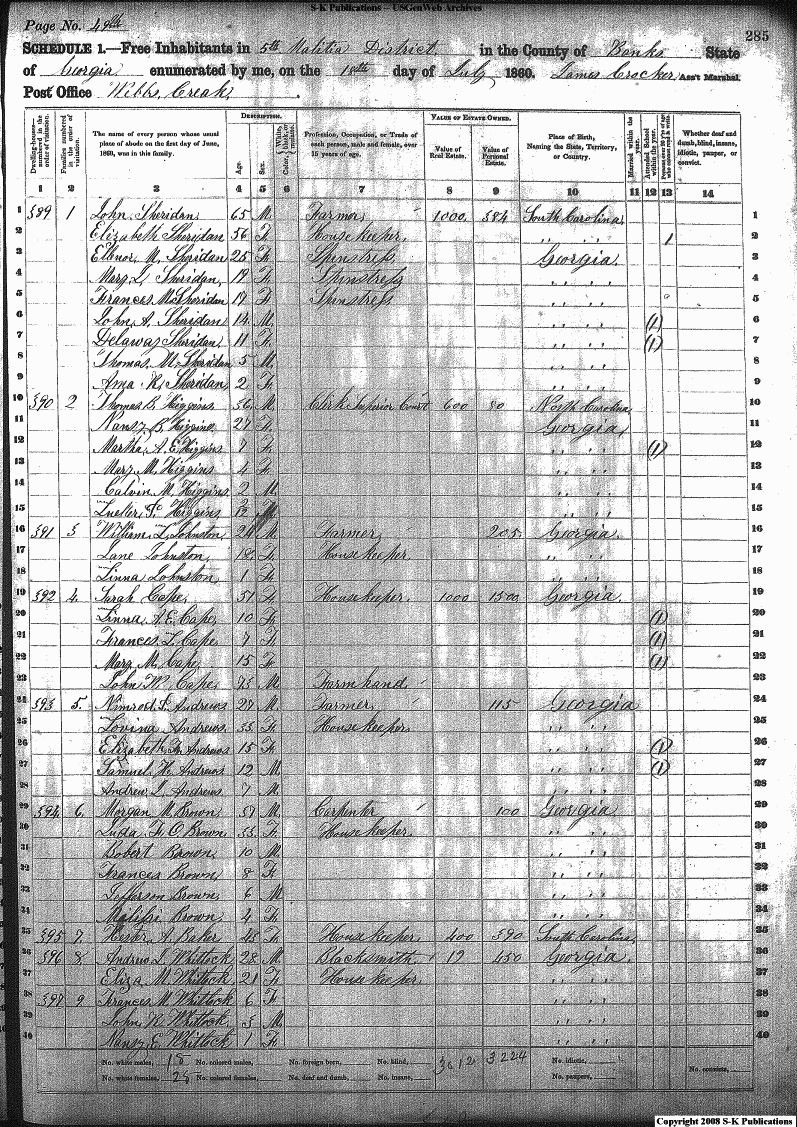 S-K Publications – USGenWeb Archives
Page No. 49th
285
SCHEDULE 1.—Free Inhabitants in 5th Malitia District in the County of Banks State
of Georgia enumerated by me, on the 10th day of July 1860. James Crocker Ass't Marshal.
Post Office Webbs, Creak,
DESCRIPTION. VALUE OF ESTATE OWNED.
Dwelling-houses—numbered in the order of visitation. Families numbered in the order of visitation. The name of every person whose usual place of abode on the first day of June, 1860, was in this family. Age. Sex. Color, White, black, or mulatto. Profession, Occupation, or Trade of each person, male and female, over 15 years of age. Value of Real Estate. Value of Personal Estate. Place of Birth, Naming the State, Territory, or Country. Married within the year. Attended School within the year. Whether deaf and dumb, blind, insane, idiotic, pauper, or convict.
1 2 3 4 5 6 7 8 9 10 11 12 13 14
1 389 1 John, Sheridan 65 M. Farmer, 1000. 384 South Carolina, 1
2 Elizabeth Sheridan 56 F. House keeper, ,, ,, 1 2
3 Ellenor, M, Sheridan 25 F. Spinstress Georgia 3
4 Mary, L, Sheridan, 19 F. Spinstress ,, ,, 4
5 Frances, M Sheridan 17 F. Spinstress ,, ,, 5
6 John, A, Sheridan 14 M. ,, ,, (1) 6
7 Delawas Sheridan 11 F. ,, ,, (1) 7
8 Thomas, M, Sheridan 5 M. ,, ,, 8
9 Ama R, Sheridan 2 F. ,, ,, 9
10 390 2 Thomas B, Higgins 36 M. Clerk Superior Court 600 80 North Carolina, 10
11 Nansy, B, Higgins, 27 F. Georgia, 11
12 Martha, A, E, Higgins 7 F. ,, ,, (1) 12
13 Mary, M, Higgins 4 F. ,, ,, 13
14 Calvin, M, Higgins 2 M. ,, ,, 14
15 Higgins ,, ,, 15
16 391 3 William, L, Johnston, 24 M. Farmer, 205 Georgia. 16
17 Lane Johnston, 18 F. House keeper ,, ,, 17
18 Linna Johnston, 1 F. ,, ,, 18
19 392 4. Sarah Cape, 51 F. House keeper, 1000 1500 Georgia. 19
20 Linna, A, E, Cape, 10 F. ,, ,, (1) 20
21 Frances, L, Cape 7 F. ,, ,, (1) 21
22 Mary, M, Cape, 15 F. ,, ,, (1) 22
23 John W, Cape, M. Farm hand ,, ,, 23
24 393 5. Nimrod, Andrews 27 M. Farmer, 115 Georgia 24
25 Lovina, Andrews. 33 F. House keeper, ,, ,, 25
26 Elizabeth, Andrews 15 F. ,, ,, (1) 26
27 Samuel, H, Andrews 12 M. ,, ,, (1) 27
28 Andrew, L, Andrews 7 M. ,, ,, 28
29 394 6. Morgan, M, Brown, 57 M. Carpenter 100 Georgia 29
30 Luda, F, O, Brown, 33 F. House keeper, ,, ,, 30
31 Bobert Brown, 10 M. ,, ,, 31
32 Frances Brown, 8 F. ,, ,, 32
33 Jefferson Brown, 6 M. ,, ,, 33
34 Brown, 4 F. ,, ,, 34
35 395 7. Hester, A, Baker 48 F. House keeper, 400 390 South Carolina, 35
36 396 8. Andrew, L, Whitlock 28 M. Blacksmith, 12 450 Georgia. 36
37 Eliza, M, Whitlock, 21 F. House keeper. ,, ,, 37
38 397 9. Frances, M, Whitlock 6 F. ,, ,, 38
39 John, Whitlock, 3 M. ,, ,, 39
40 Nansy, E, Whitlock 1 F. ,, ,, 40
No. white males, 15 No. colored males, No. foreign born, No. blind, 3012 3224 No. idiotic,
No. white females, 25 No. colored females, No. deaf and dumb, No. insane, No. paupers, No. convicts,
Copyright 2008 S-K Publications